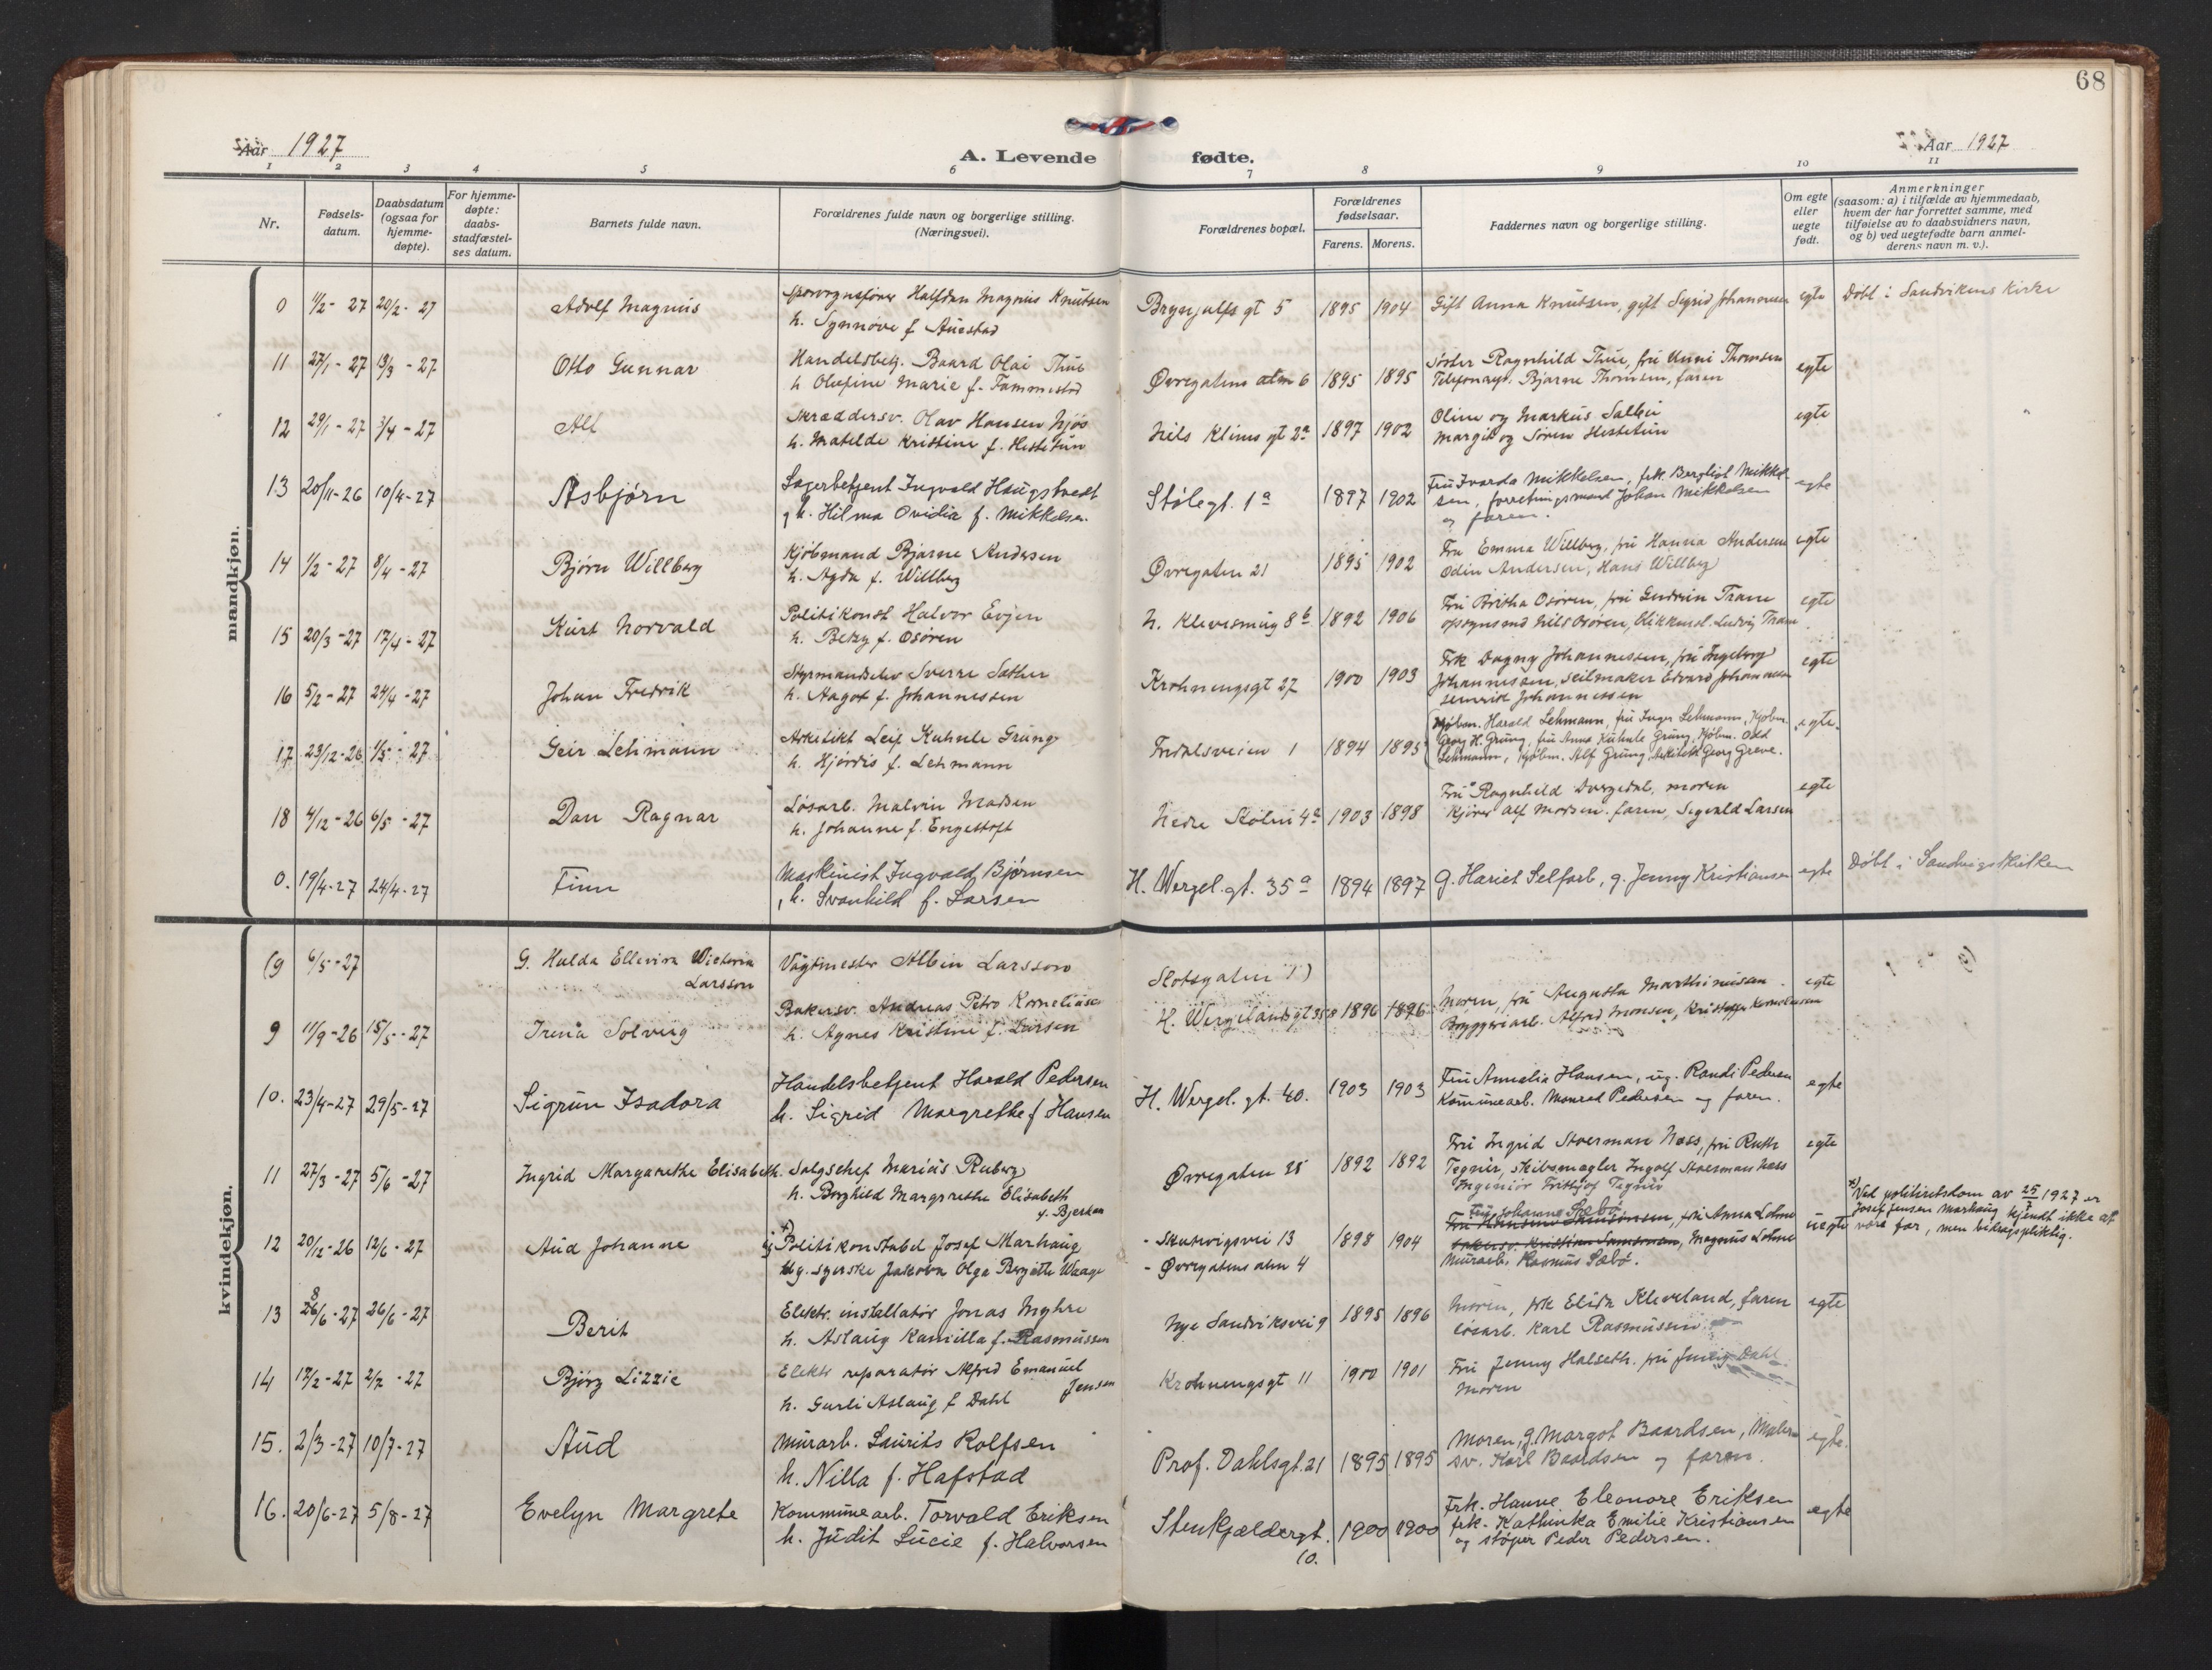 68
Aar 1927
A. Levende fødte.
Aar 1927
1 2 3 4 5 6 7 8 9 10 11
Nr.
Fødsels-
datum.
Daabsdatum
(ogsaa for
hjemme-
døpte).
For hjemme-
døpte:
daabs-
stadfæstel-
ses datum.
Barnets fulde navn.
Forældrenes fulde navn og borgerlige stilling.
(Næringsvei).
Forældrenes bopæl.
Forældrenes
fødselsaar.
Farens. Morens.
Faddernes navn og borgerlige stilling.
Om egte
eller
uegte
født.
Anmerkninger
(saasom: a) i tilfælde av hjemmedaab,
hvem der har forrettet samme, med
tilføielse av to daabsvidners navn,
og b) ved uegtefødte barn anmel-
derens navn m. v.).
mandkjøn.
0 1/2 - 27 20/2 - 27 Adolf Magnus
Sporvognsfører Halfdan Magnus Knutsen
h. Synnøve f. Auestad
Brynjulfs gt 5 1895 1904 Gift Anna Knutsen, gift Sigrid Johannesen egte Døbt i Sandvikens Kirke
11 27/1 - 27 13/3 - 27 Otto Gunnar
Handelsbetj. Baard Olai Thue
h. Olufine Marie f. Tammestad
Øvregatens alm 6 1895 1895
Søster Ragnhild Thue, fru Unni Thomsen
Bjarne Thomsen, faren
egte
12 29/1 - 27 3/4 - 27
Skræddersv. Olav Hansen Njøs
h. Matilde Kristine f. Hestetun
Nils Klims gt 2a 1897 1902
Oline og Markus
Margit og Søren Hestetun
egte
13 20/11-26 10/4-27 Asbjørn
Lagerbetjent Ingvald Haugstvedt
h. Hilma Ovidia f. Mikkelsen.
Stølegt. 1a 1897 1902
Fru Ivarda Mikkelsen, frk. Bergliot Mikkel-
sen, forretningsmand Johan Mikkelsen
og faren.
egte
14 1/2 - 27 8/4 - 27 Bjørn Willberg
Kjøbmand Bjarne Andersen
h. Agda f. Willberg
Øvregaten 21 1895 1902
Fru Emma Willberg, fru Hanna Andersen
Odin Andersen, Hans Willberg
egte
15 20/3-27 17/4-27 Kurt Norvald
Politikonst Halvor Evjen
h. Betzy f. Osøren
1892 1906
Fru Birtha Osøren, fru Gudrun Trane
opsynsmd Nils Osøren, blikkensl. Ludvig Trane
egte
16 5/2-27 24/4-27 Johan Fredrik
Styrmandselev Sverre Sather
h. Aagot f. Johannessen
Krohnengsgt 27 1900 1903
Frk Dagny Johannessen, fru Ingeborg
Johannessen, Seilmaker Edvard Johannessen
Johannessen
egte
17 23/12-26 1/5 - 27 Geir Lehmann
Arkitekt Leif Kuhnle Grung
h. Hjørdis f. Lehmann
1894 1895
Kjøbm. Harald Lehmann, fru Inger Lehmann, Kjøbm.
Georg H. Grung, fru Anna Kuhnle Grung, Kjøbm. Odd
Lehmann, Kjøbm. Alf Grung, Arkitekt Georg Greve.
egte.
18 4/12-26 6/5 - 27 Dan Ragnar
Løsarb. Malvin Madsen
h. Johanne f. Engeltoft
Nedre Stølen 4a 1903 1898
Fru Ragnhild Dvergedal, moren
Kjører Alf Monsen. faren, Sigvald Larsen
egte
0. 19/4-27 24/4-27 Finn
Maskinist Ingvald Bjørnsen
h. Svanhild f. Larsen
H. Wergel. gt. 35a 1894 1897 g. Hariet Selfarb, g. Jenny Kristiansen egte Døbt i Sandvigskirken
kvindekjøn.
(9 6/5-27
G. Hulda Ellevira Wictoria
Larsson
Vagtmester Albin Larsson
Slotsgaten 1)
9 11/9-26 15/5-27 Irena Solveig
Bakersv. Andreas Petro Kornelius
h. Agnes Kristine f. Larsen
H. Wergelandsgt 35 B 1896 1896
Moren, fru Augusta Marthinussen.
Bryggeriarb. Alfred Monsen, Kristoffer Korneliussen
egte
10. 23/4-27 29/5-27 Sigrun Isadora
Handelsbetjent Harald Pedersen
h. Sigrid Margrethe f Hansen
H. Wergel. gt. 40. 1903 1903
Fru Annalia Hansen, ug. Randi Pedersen
Komunearb. Monrad Pedersen og faren.
egte
11 27/3-27 5/6-27 Ingrid Margarethe Elisabeth.
Salgschef Marius Ruberg
h. Borghild Margrethe Elisabeth
f. Bjerkan
Øvregaten 25 1892 1892
Fru Ingrid Stoerman Næss, fru Ruth
Tegnér, skibsmægler Ingolf Stoerman Næss
Ingeniør Fritthjof Tegnér
egte
12 20/12-26 12/6-27 Aud Johanne
x)
Politikonstabel Josef Marhaug
ug. syerske Jakobea Olga Bergitte Waage
- Skutevigsvei 13
- Øvregatens alm 4
1898 1904
Fru Johanna Sæbø
fru Anna Lohne
Bakersv. Kristian Samsonsen, Magnus Lohne
Murarb. Rasmus Sæbø.
uegte
x) Ved politiretsdom av 25/7 1927 er
Josef Jensen Marhaug kjendt ikke at
være far, men bidragspliktig.
13 8 26/6-27 26/6-27 Berit
Elektr. installatør Jonas Myhre
h. Aslaug Kamilla f. Rasmussen
Nye Sandviksvei 9 1895 1896
Moren, frk Elida Kleveland, faren
løsarb. Karl Rasmussen
egte
14 17/2-27 2/7-27 Bjørg Lizzie
Elektr reparatør Alfred Emanuel
Jensen
h. Gurli Aslaug f Dahl
Krohnengsgt 11 1900 1901
Fru Jenny Halseth. fru Dahl.
Moren
15. 2/3-27 10/7-27 Aud
Murarb. Laurits Rolfsen
h. Nilla f. Hafstad
Prof. Dahlsgt. 21 1895 1895
Moren, g. Margot Baardsen, Maler-
sv. Karl Baardsen og faren.
egte.
16. 20/6-27 5/8-27 Evelyn Margrete
Kommunearb. Torvald Eriksen
h. Judit Lucie f. Halvorsen
Stenkjældergt.
10.
1900 1900
Frk. Hanne Eleonore Eriksen
frk. Kathinka Emilie Kristiansen
og støper Peder Pedersen.
egte